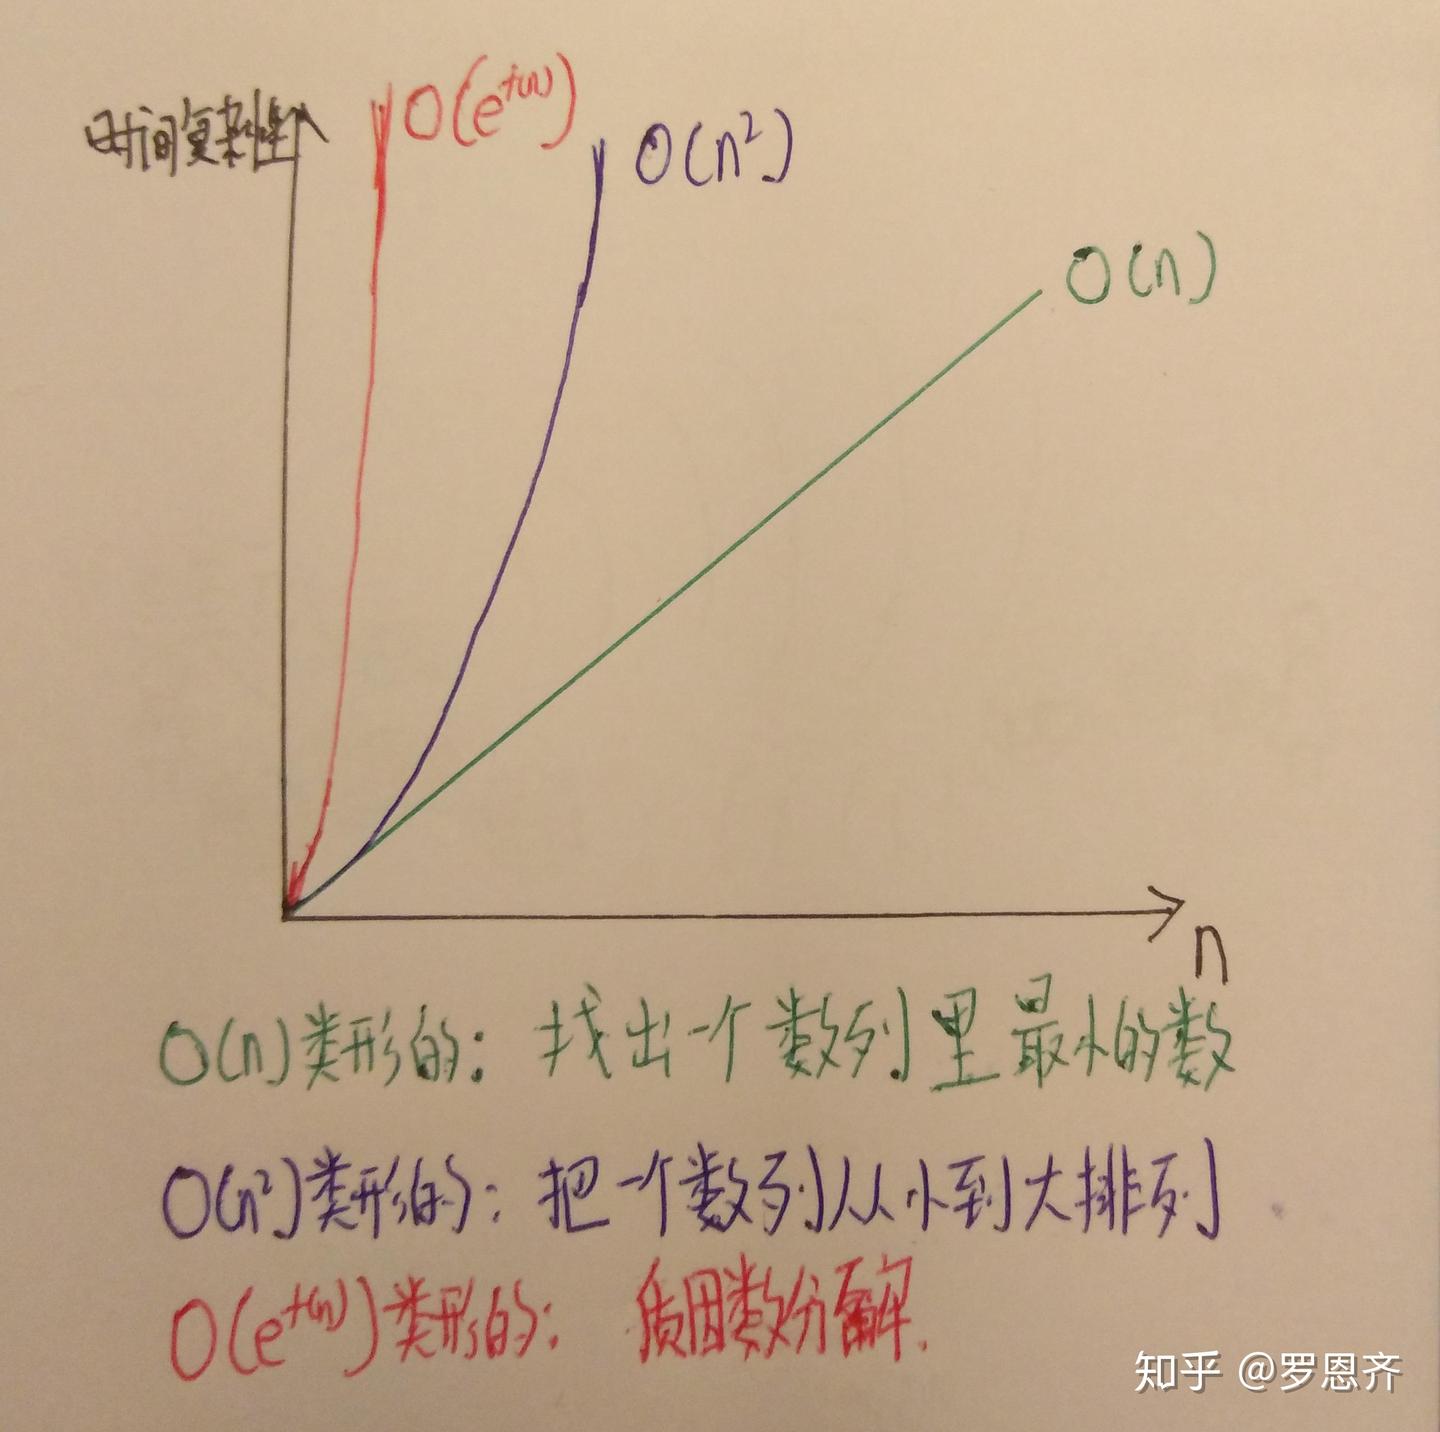 时间复杂性
O(e^f(n))
O(n²)
O(n)
n
O(n)类形的：找出一个数列里最小的数
O(n²)类形的：把一个数列从小到大排列
O(e^f(n))类形的：质因数分解.
知乎 @罗恩齐